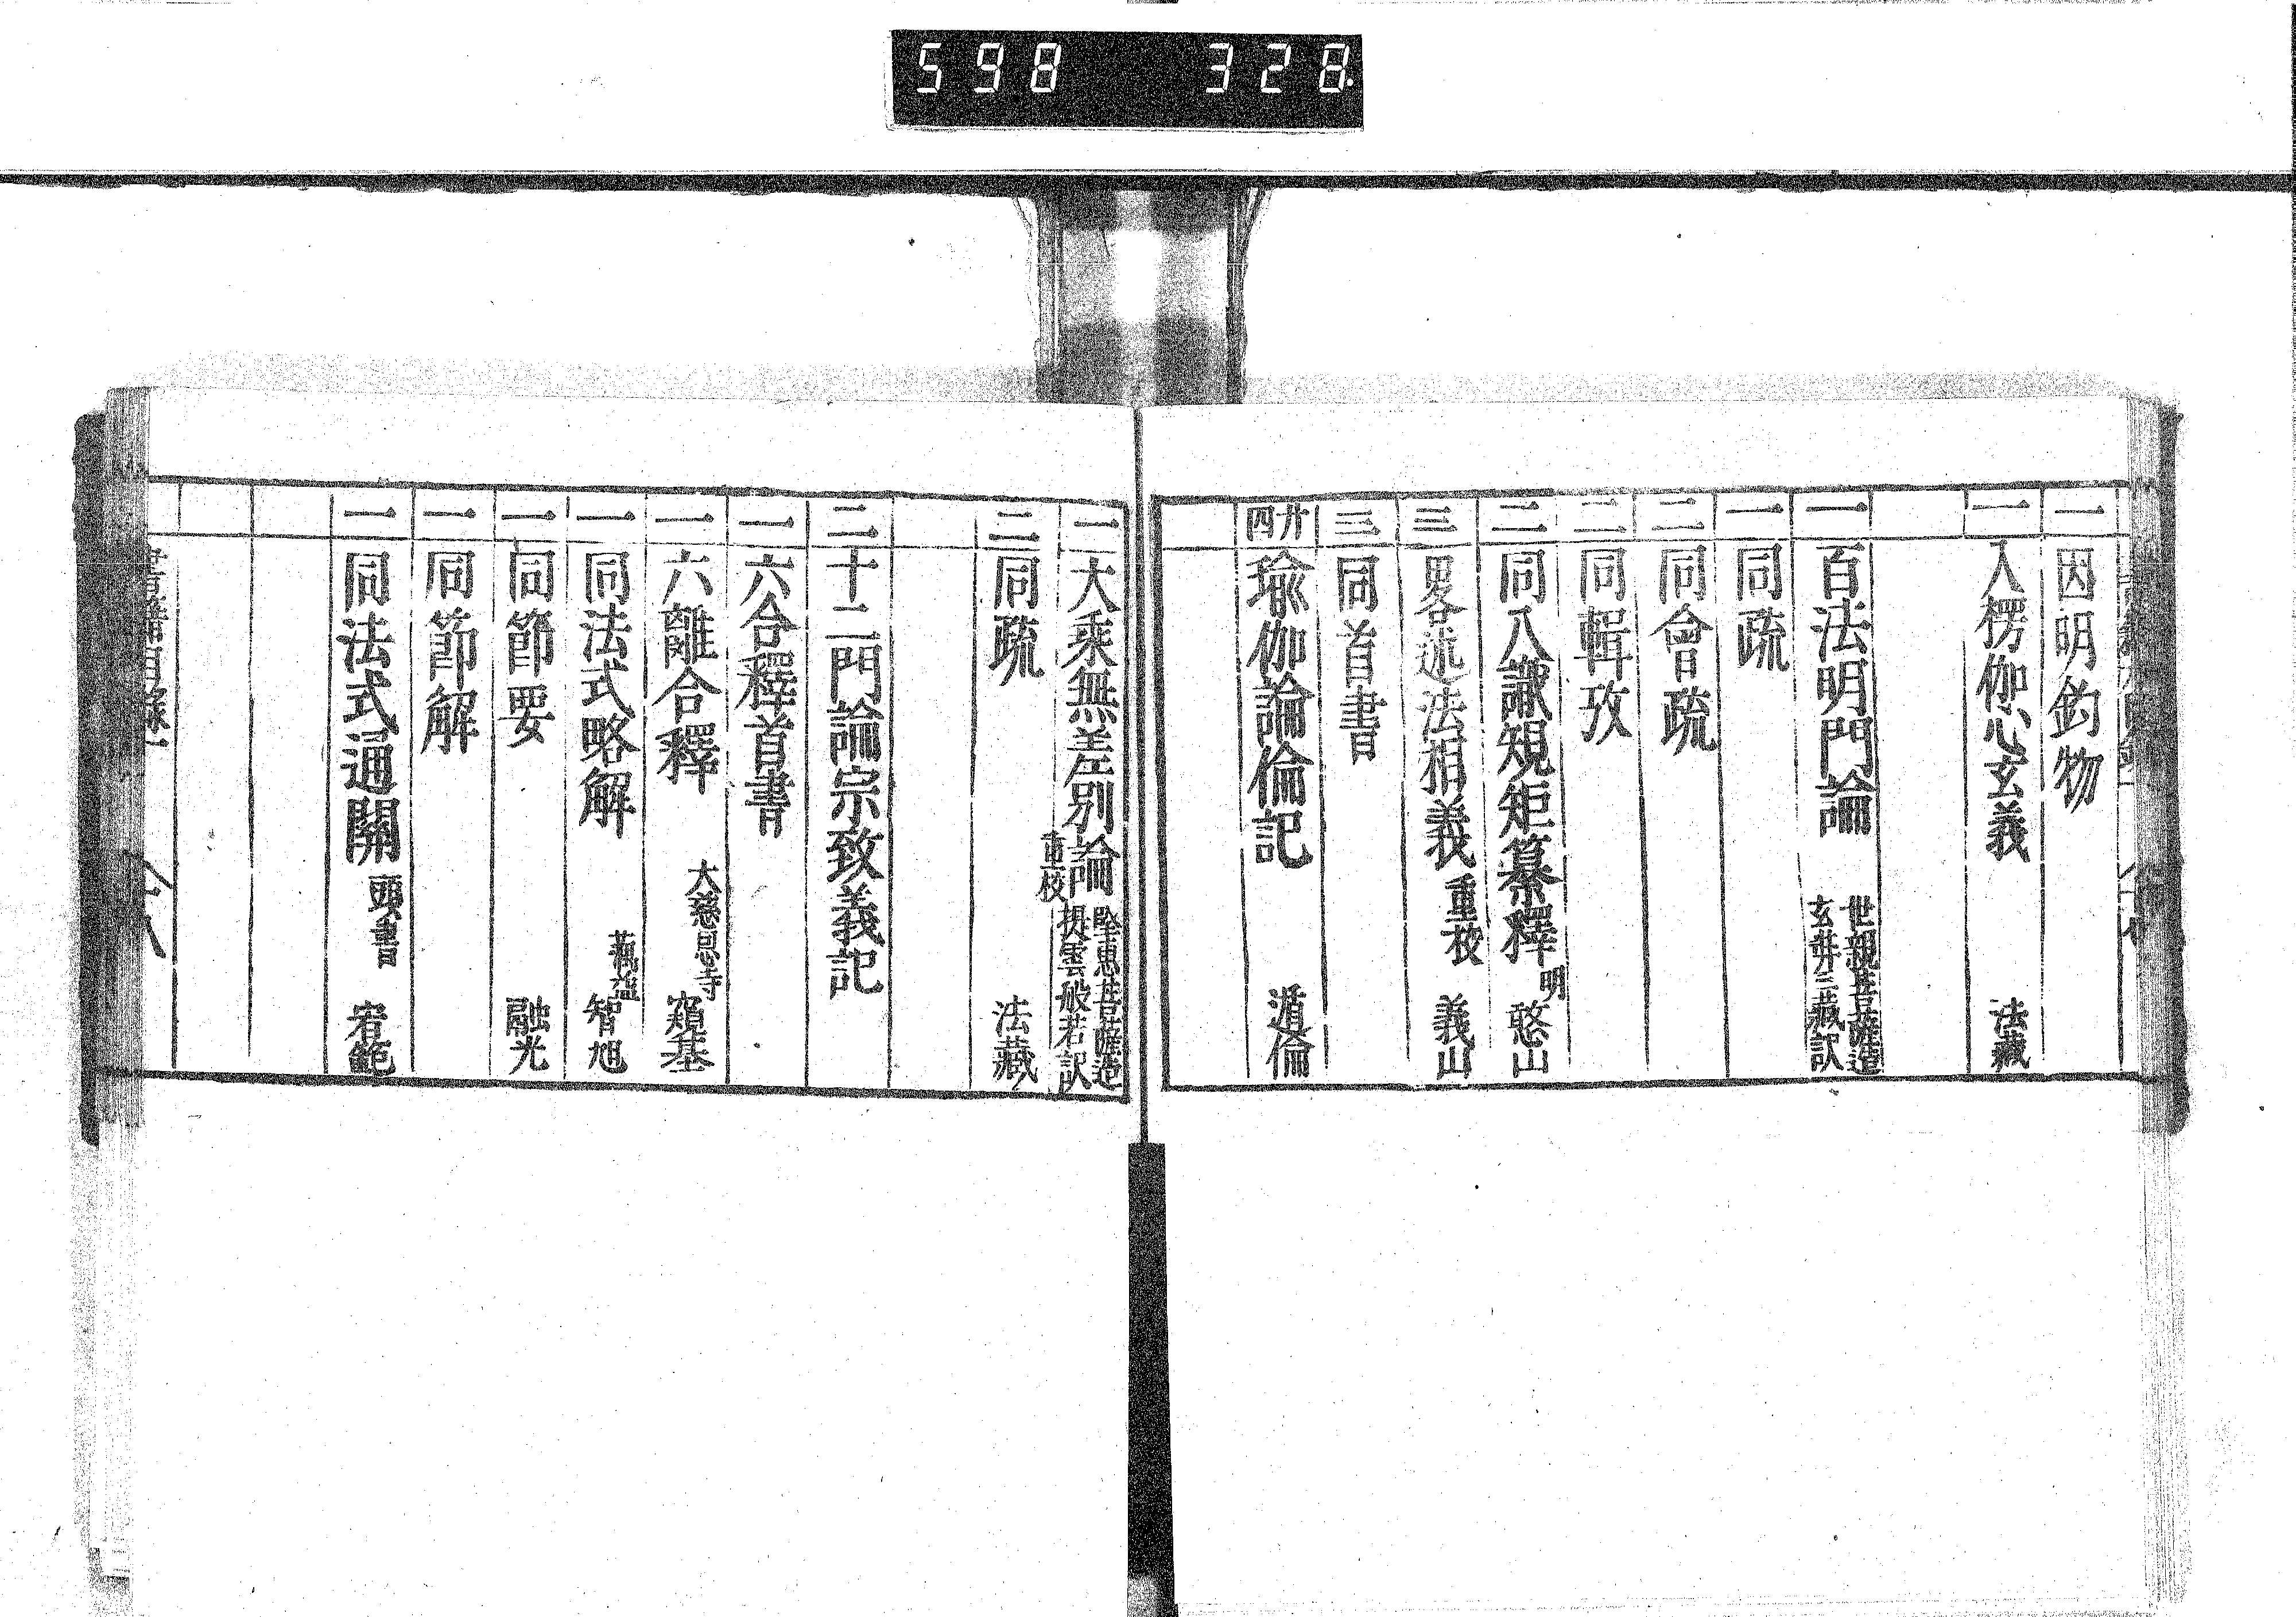 598 328.
一 因明鈞物
一 入楞伽心玄義 法藏
一 百法明門論 世親菩薩造 玄弉三藏訳
一 同疏
二 同會疏
二 同輯攷
二 同八識規矩纂釋 明 憨山
三 畧述法相義 重校 義山
三 同首書
廿四 瑜伽論倫記 遁倫
一 大乘無差別論 堅恵菩薩造 提雲般若訳
三 同疏 重校 法藏
二 十二門論宗致義記
一 六合釋首書
一 六離合釋 大慈恩寺 窺基
一 同法式略解 蕅益 智旭
一 同節要 融光
一 同節解
一 同法式通關 頭書